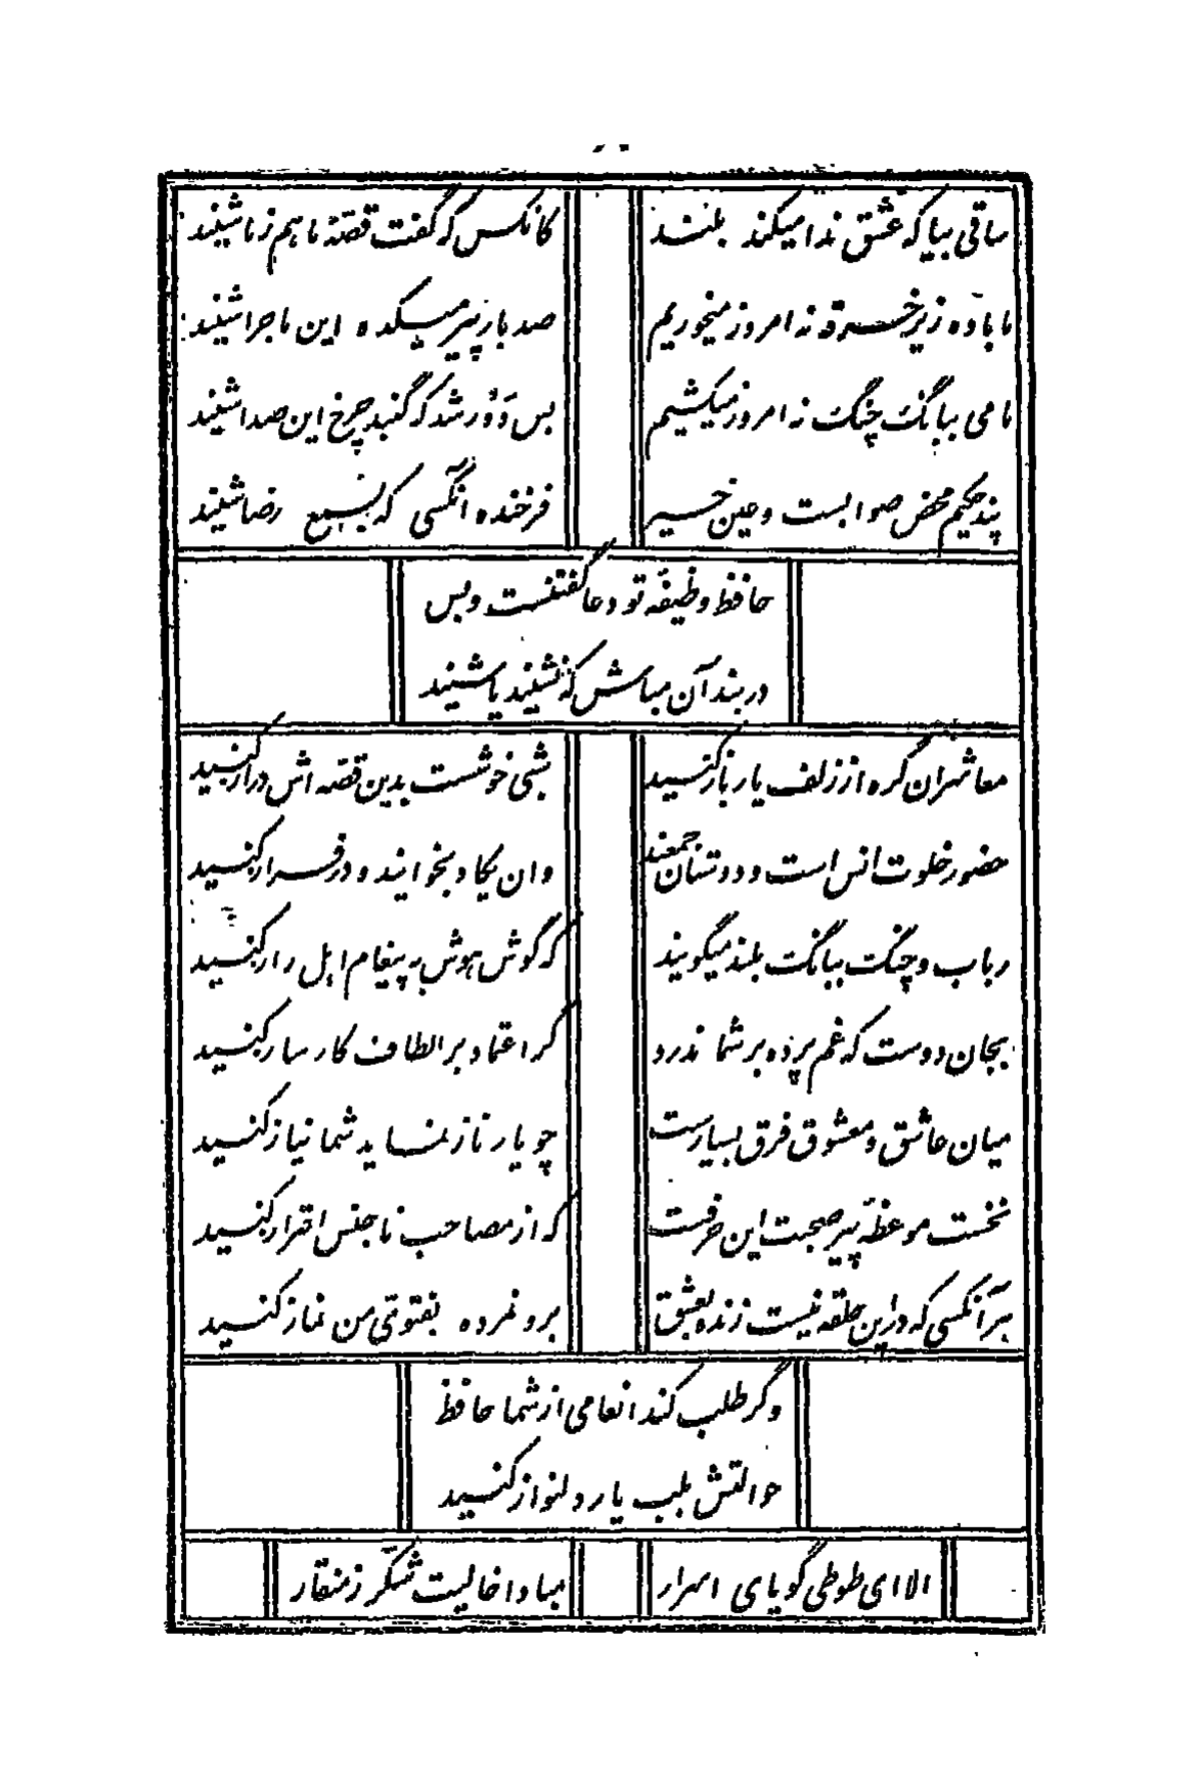 ساقی بیا که عشق ندا میکند بلند
کانکس که گفت قصّهٔ ما هم ز ما شنید
ما باده زیر خرقه نه امروز میخوریم
صد بار پیر میکده این ماجرا شنید
ما می ببانگ چنگ نه امروز میکشیم
بس دَور شد که گنبد چرخ این صدا شنید
پند حکیم محض صوابست و عین خیر
فرخنده آنکسی که بسمع رضا شنید
حافظ وظیفهٔ تو دعا گفتنست و بس
در بند آن مباش که نشنید یا شنید
معاشران گره از زلف یار باز کنید
شبی خوشست بدین قصّه اش دراز کنید
حضور خلوت انس است و دوستان جمعند
وان یکاد بخوانید و در فراز کنید
رباب و چنگ ببانگ بلند میگویند
که گوش هوش به پیغام اهل راز کنید
بجان دوست که غم پرده بر شما ندرد
گر اعتماد بر الطاف کارساز کنید
میان عاشق و معشوق فرق بسیارست
چو یار ناز نماید شما نیاز کنید
نخست موعظهٔ پیر صحبت این حرفست
که از مصاحب ناجنس احتراز کنید
هر آنکسی که درین حلقه نیست زنده بعشق
برو نمرده بفتوی من نماز کنید
وگر طلب کند انعامی از شما حافظ
حوالتش بلب یار دلنواز کنید
الا ای طوطی گویای اسرار
مبادا خالیت شکّر ز منقار